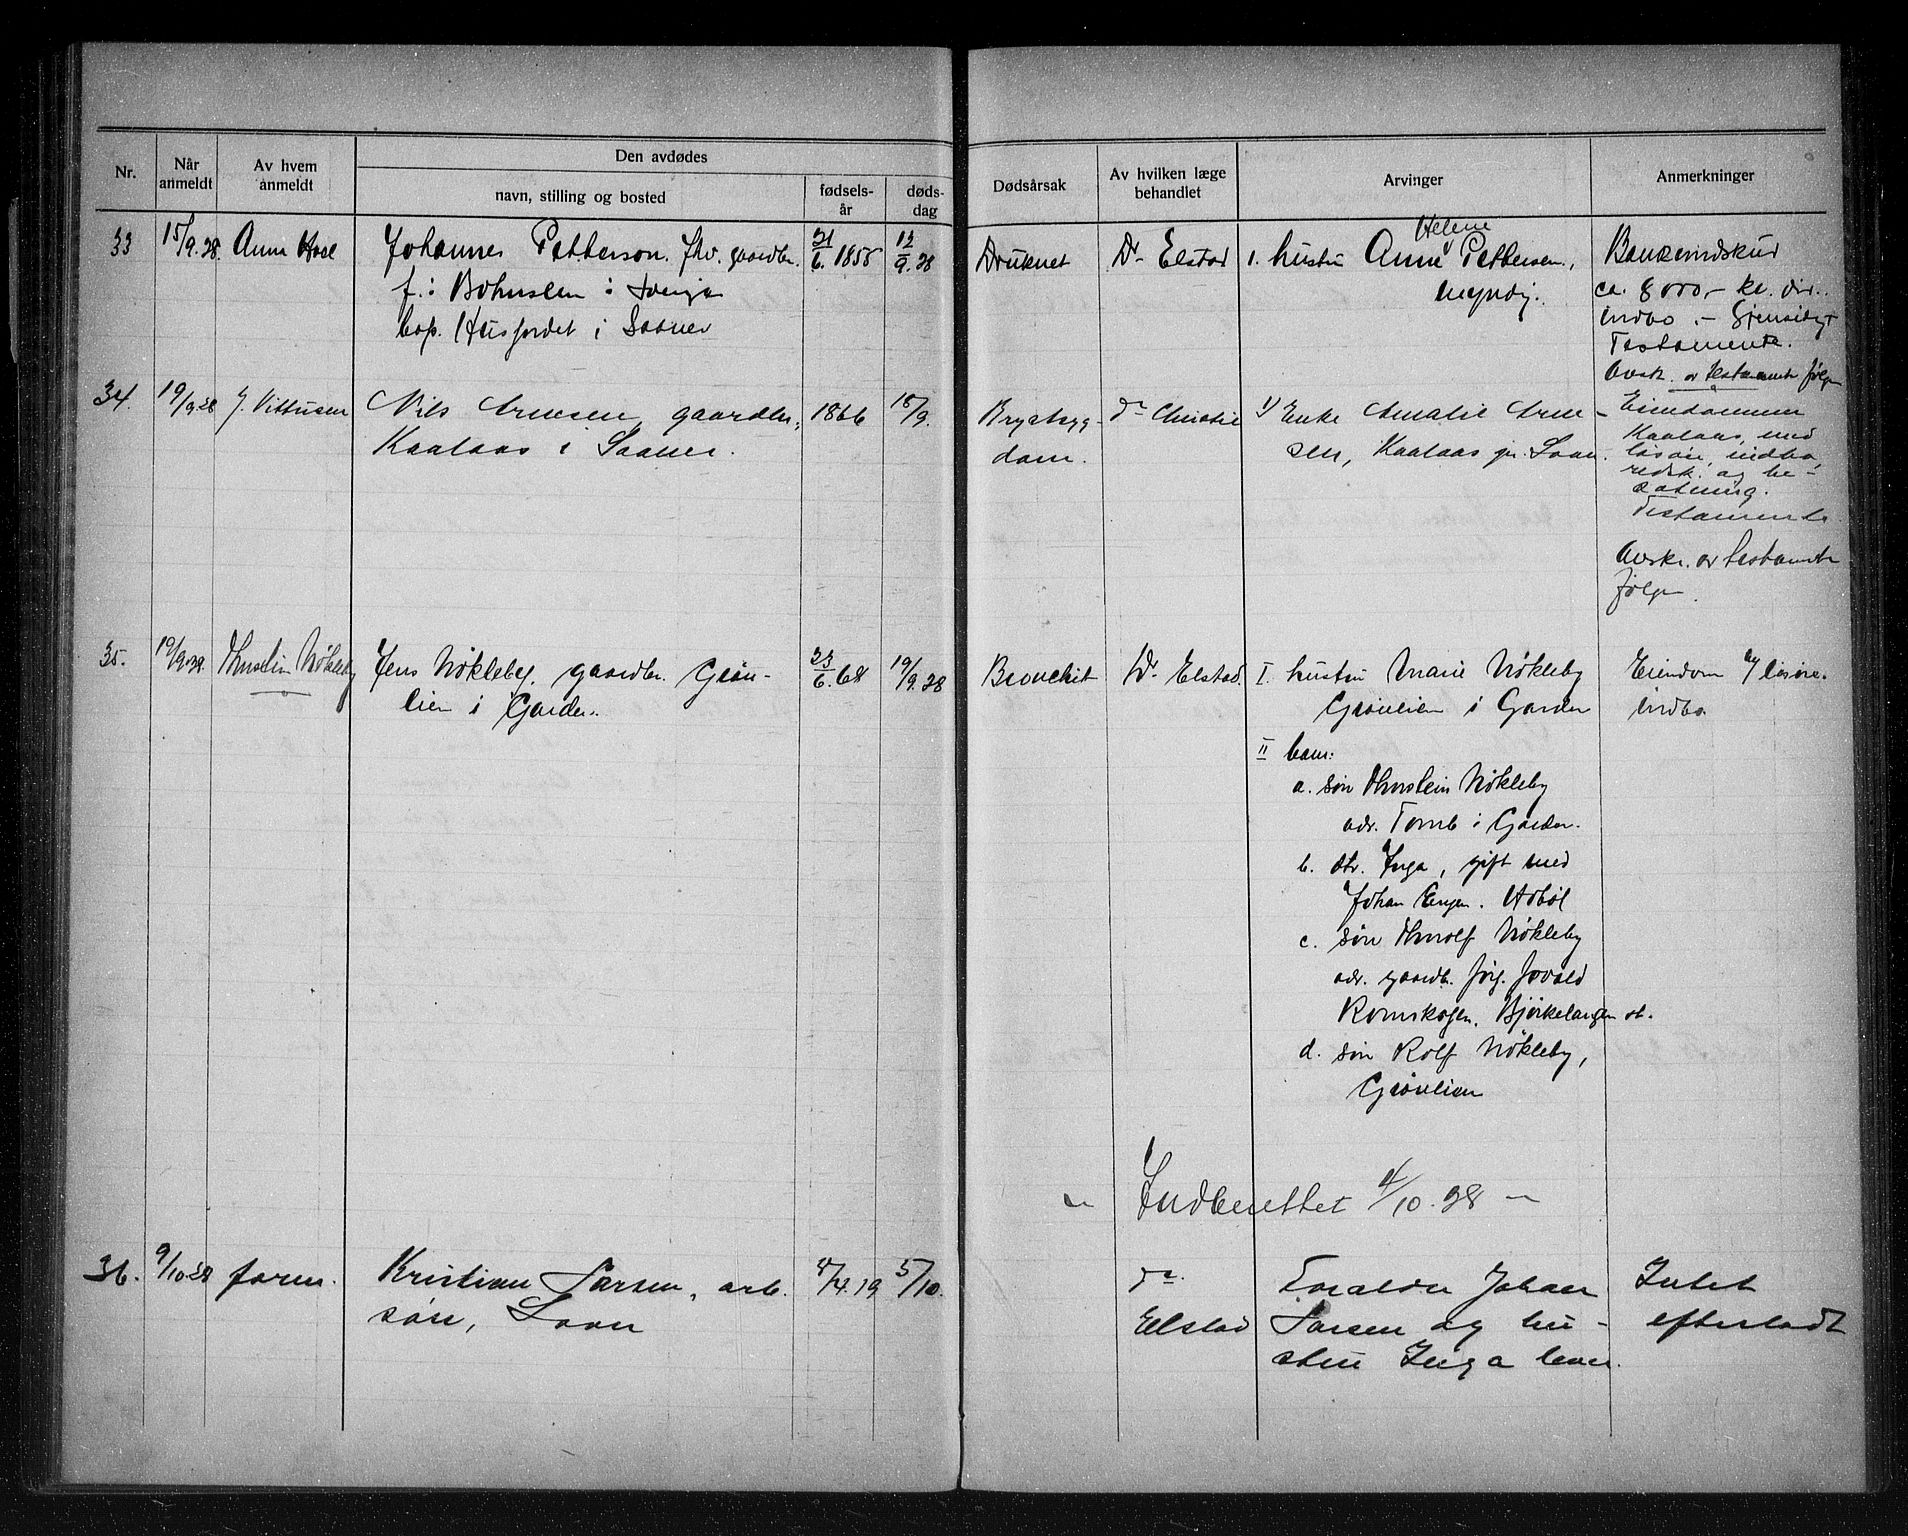 Nr.
Når anmeldt
Av hvem anmeldt
Den avdødes
navn, stilling og bosted
fødsels-år
døds-dag
Dødsårsak
Av hvilken læge behandlet
Arvinger
Anmerkninger
33 15/9.28. Anna
Johannes Petterson. fhv. gaardbr.
f. i Bohuslen i
bop. i Saaner
21/6. 1855
12/9.28
Druknet
Dr Elstad
1. hustru Anna Helene Pettersen,
myndig.
Bankindskud
ca. 8000,- kr. div.
indbo. - Gjensidig
Testamente.
Avsk. av testamente følger
34. 19/9.28 J. Vittusen
Nils Arnesen, gaardbr.,
Kaalaas i Saaner.
1866
18/9.
Brystsyg-
dom.
dr Christie
1/ Enke Amalie Arne-
sen, Kaalaas pr. Soon.
Eiendommen
Kaalaas, med
løsøre, indbo,
redsk. og be-
sætning.
Testamente
Avskr. av testamente
følger.
35. 19/9.28. Thorstein Nøkleby
Jens Nøkleby, gaardbr. Grøn-
lien i Garder.
23/6.68
19/9.28
Bronchit
Dr. Elstad.
I. hustru Marie Nøkleby
Grønlien i Garder
II barn:
a. søn Thorstein Nøkleby
adr. Tomb i Garder.
b. dtr. Inga, gift med
Johan Engen. Hobøl
c. søn Thorolf Nøkleby
adr. gaardb. Jørg.
Romskogen. Bjørkelangen st.
d. søn Rolf Nøkleby,
Grønlien
Eiendom løsøre.
indbo
Indberettet 4/10.28 -
36. 9/10.28 faren.
Kristian Larsen, arb.
søn, Soon
4/4.19
5/10.
dr.
Elstad
Forældre Johan
Larsen og hu-
stru Inga lever.
Intet
efterladt